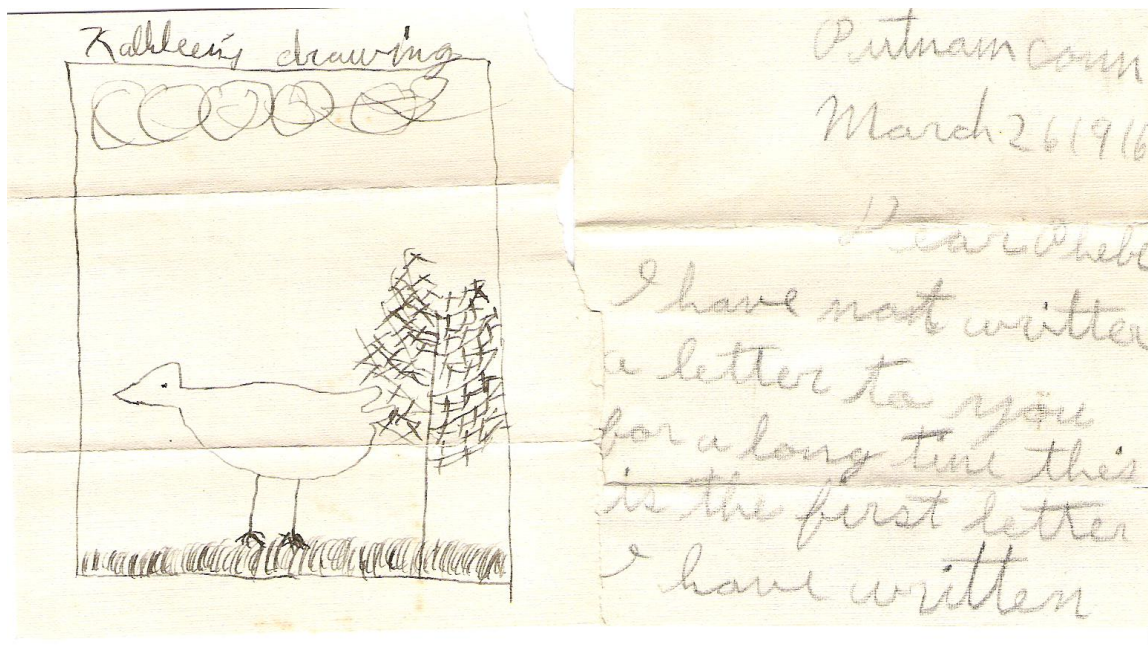 Kathleen's drawing
Putnam Conn
March 26 1916
Dear Phebe
I have not written
a letter to you
for a long time this
is the first letter
I have written